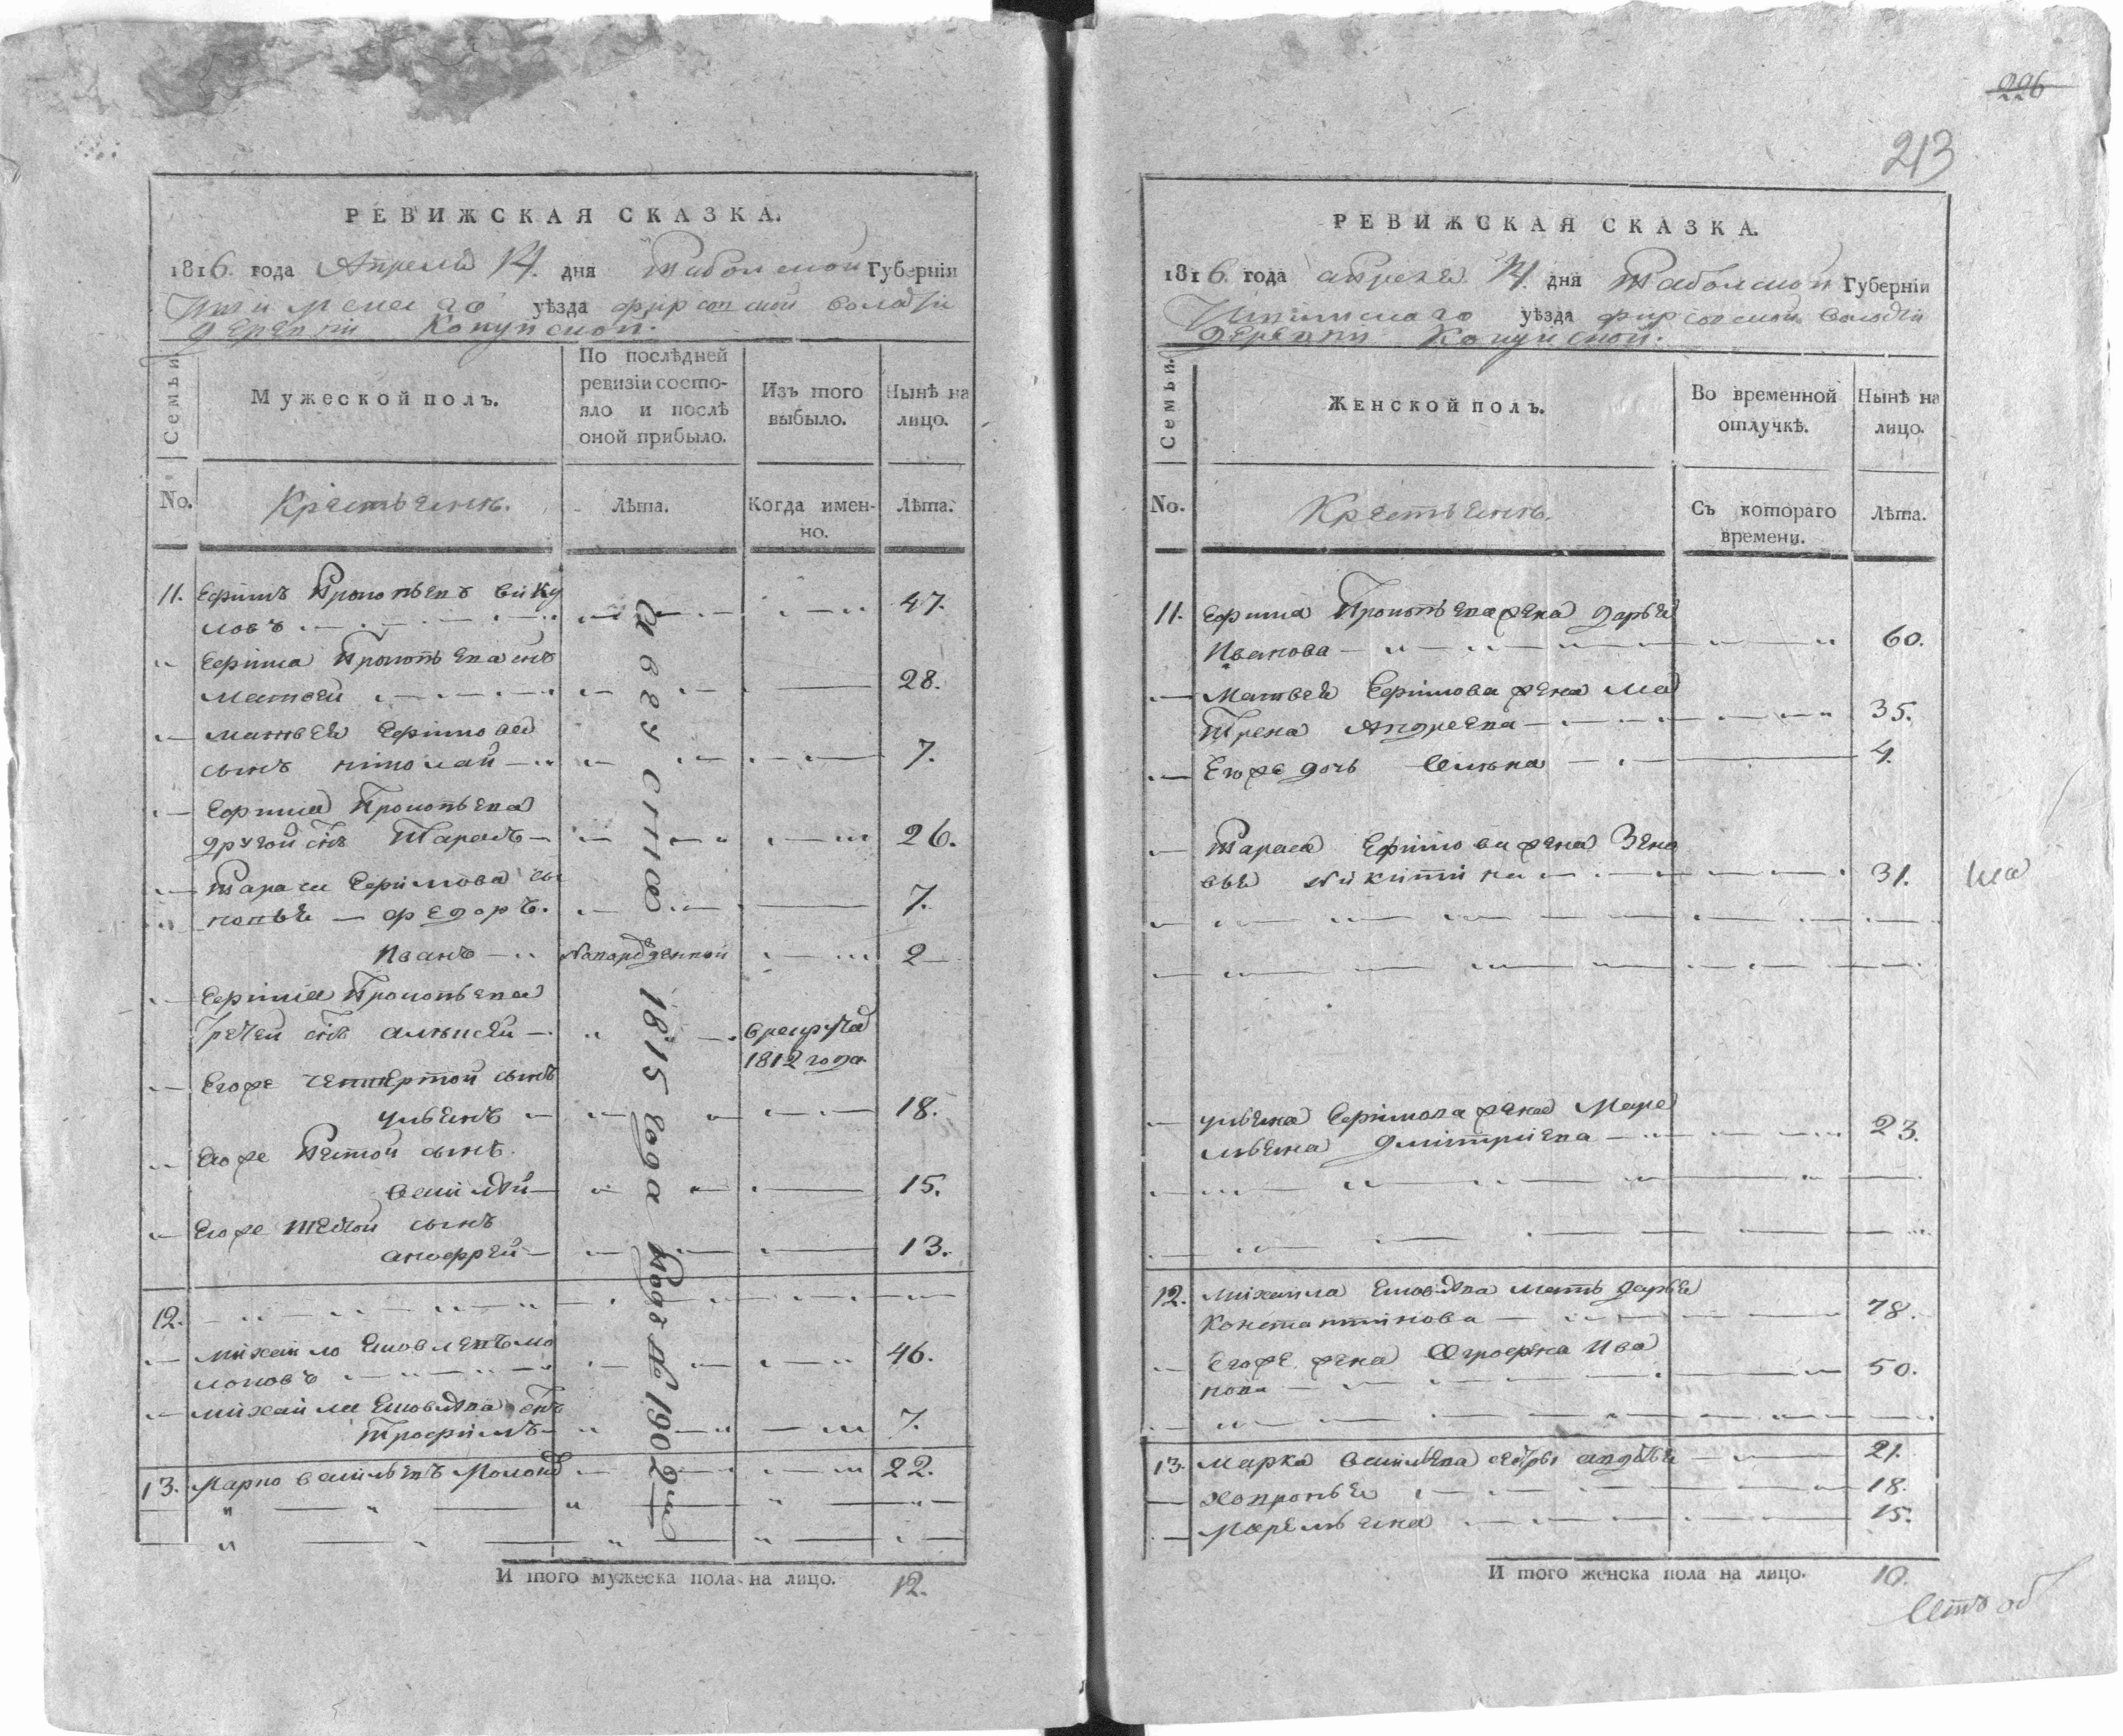 РЕВИЖСКАЯ СКАЗКА.
1816. года Апреля 14. дня Таболской Губерніи
Ишимскаго уѣзда фирсовской волости
деревни Кокуйской.
Семьи.
Мужеской полъ.
По послѣдней
ревизіи состо-
яло и послѣ
оной прибыло.
Изъ того
выбыло.
Нынѣ на
лицо.
No.
Крестьянъ.
Лѣта.
Когда имен-
но.
Лѣта.
11. Ефимъ Прокопьевъ Вику
ловъ 47.
Ефима Прокопьева снъ
Матвей 28.
Матвея Ефимова
сынъ николай 7.
Ефима Прокопьева
другой снъ Тарасъ 26.
Тараса Ефимова сы
новья — федоръ. 7.
Иванъ новорожденной 2
Ефима Прокопьева
третей снъ алексей врекруты
1812 года
Егоже четвертой сынъ
ульянъ 18.
Егоже Пятой сынъ.
василей 15.
Егоже шестой сынъ
анофрей 13.
12.
михайло Яковлевъ
46.
михайла Яковлева снъ
Трофимъ 7.
13. Марко васильевъ 22.
1815 года
И того мужеска пола на лицо. 12.
226
213
РЕВИЖСКАЯ СКАЗКА.
1816. года апреля. 14. дня Таболской Губерніи
Ишимскаго уѣзда фирсовской волости
деревни Кокуйской.
Семьи.
Женской полъ.
Во временной
отлучкѣ.
Нынѣ на
лицо.
No.
Крестьянъ.
Съ котораго
времени.
Лѣта.
11. Ефима Прокопьева жена дарья
Иванова 60.
Матвея Ефимова жена ма
трена Андреева 35.
Егоже дочь 4.
Тараса Ефимова жена Зено
вья Никитина 31.
ульяна Ефимова жена Маре
мьяна дмитриева 23.
12. михаила Яковлева мать дарья
Константинова 78.
Егоже жена Агрофена Ива
нова 50.
13. Марка васильева сестры авдотья 21.
хопронья 18.
Маремьяна 15.
И того женска пола на лицо. 10.